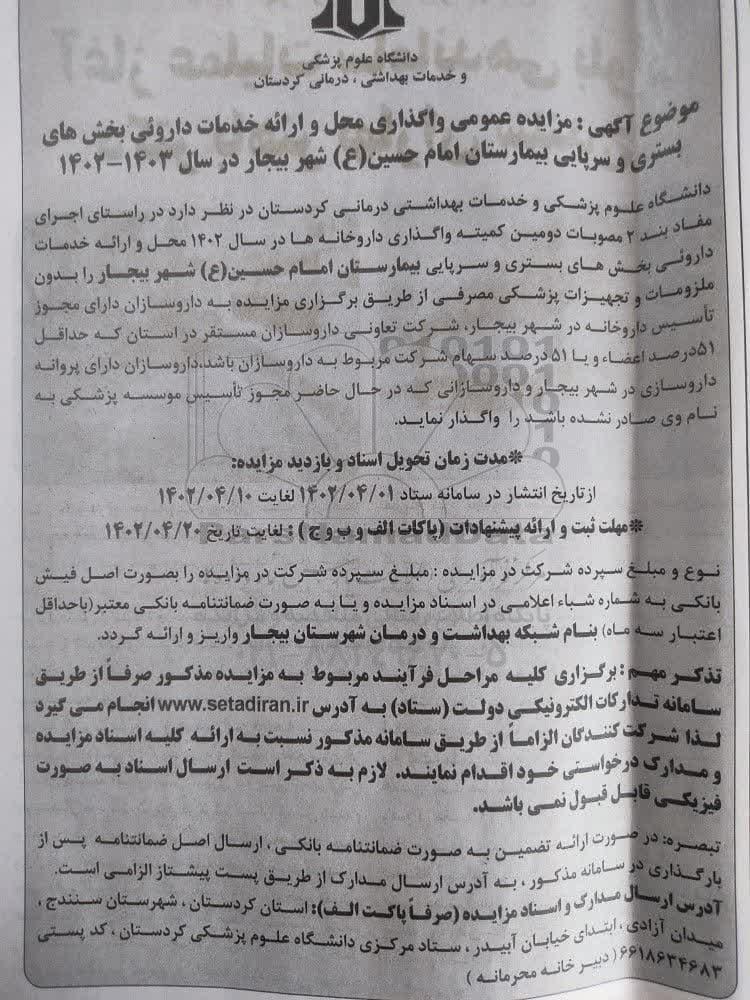 دانشگاه علوم پزشکی
و خدمات بهداشتی ، درمانی کردستان
موضوع آگهی : مزایده عمومی واگذاری محل و ارائه خدمات داروئی بخش های
بستری و سرپایی بیمارستان امام حسین(ع) شهر بیجار در سال ۱۴۰۳-۱۴۰۲
دانشگاه علوم پزشکی و خدمات بهداشتی درمانی کردستان در نظر دارد در راستای اجرای
مفاد بند ۲ مصوبات دومین کمیته واگذاری داروخانه ها در سال ۱۴۰۲ محل و ارائه خدمات
داروئی بخش های بستری و سرپایی بیمارستان امام حسین(ع) شهر بیجار را بدون
ملزومات و تجهیزات پزشکی مصرفی از طریق برگزاری مزایده به داروسازان دارای مجوز
تأسیس داروخانه در شهر بیجار، شرکت تعاونی داروسازان مستقر در استان که حداقل
۵۱درصد اعضاء و یا ۵۱ درصد سهام شرکت مربوط به داروسازان باشد،داروسازان دارای پروانه
داروسازی در شهر بیجار و داروسازانی که در حال حاضر مجوز تأسیس موسسه پزشکی به
نام وی صادر نشده باشد را واگذار نماید.
*مدت زمان تحویل اسناد و بازدید مزایده:
ازتاریخ انتشار در سامانه ستاد ۱۴۰۲/۰۴/۰۱ لغایت ۱۴۰۲/۰۴/۱۰
*مهلت ثبت و ارائه پیشنهادات (پاکات الف و ب و ج ) : لغایت تاریخ ۱۴۰۲/۰۴/۲۰
نوع و مبلغ سپرده شرکت در مزایده : مبلغ سپرده شرکت در مزایده را بصورت اصل فیش
بانکی به شماره شباء اعلامی در اسناد مزایده و یا به صورت ضمانتنامه بانکی معتبر(باحداقل
اعتبار سه ماه) بنام شبکه بهداشت و درمان شهرستان بیجار واریز و ارائه گردد.
تذکر مهم : برگزاری کلیه مراحل فرآیند مربوط به مزایده مذکور صرفاً از طریق
سامانه تدارکات الکترونیکی دولت (ستاد) به آدرس www.setadiran.ir انجام می گیرد
لذا شرکت کنندگان الزاماً از طریق سامانه مذکور نسبت به ارائه کلیه اسناد مزایده
و مدارک درخواستی خود اقدام نمایند. لازم به ذکر است ارسال اسناد به صورت
فیزیکی قابل قبول نمی باشد.
تبصره: در صورت ارائه تضمین به صورت ضمانتنامه بانکی ، ارسال اصل ضمانتنامه پس از
بارگذاری در سامانه مذکور ، به آدرس ارسال مدارک از طریق پست پیشتاز الزامی است.
آدرس ارسال مدارک و اسناد مزایده (صرفاً پاکت الف): استان کردستان ، شهرستان سنندج ،
میدان آزادی ، ابتدای خیابان آبیدر ، ستاد مرکزی دانشگاه علوم پزشکی کردستان ، کد پستی
۶۶۱۸۶۳۴۶۸۳ ( دبیر خانه محرمانه )